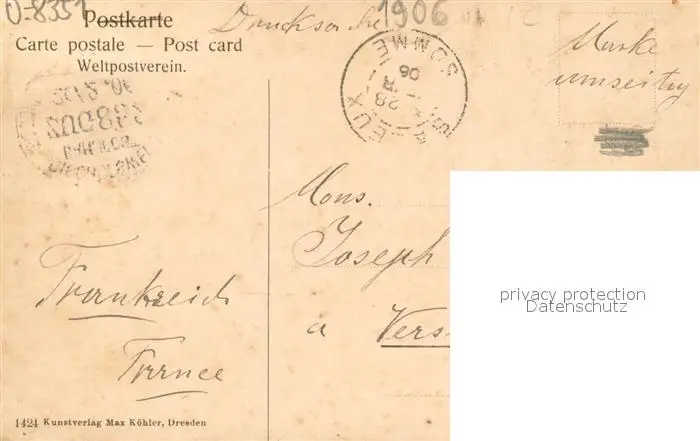 0-8351
Postkarte
Drucksache
1906
Carte postale — Post card
Weltpostverein.
Marke
umseitig
SOMME
28
06
EUX
Mons.
Joseph
à Vers
Frankreich
France
privacy protection
Datenschutz
1424 Kunstverlag Max Köhler, Dresden